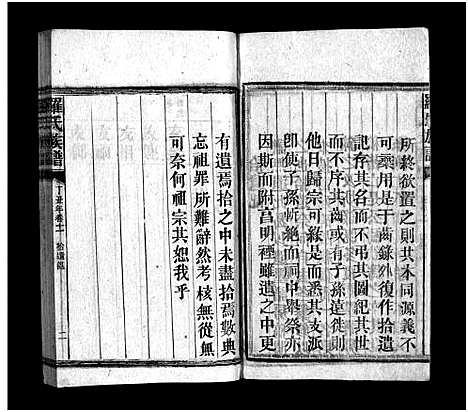 所終欲置之則其本同源義不
可乘用是于齒錄外復作拾遺
記存其名而不弔其圖紀其世
而不序其齒或有子孫遠徙則
他日歸宗可緣是而悉其支派
卽使子孫斬絶而祠中舉祭亦
因斯而附菖明禋雖遺之中更
有遺焉拾之中未盡拾焉數典
忘祖罪所難辭然考核無從無
可奈何祖宗其恕我乎
羅氏族譜
丁丑年 卷十一 拾遺鑑
二